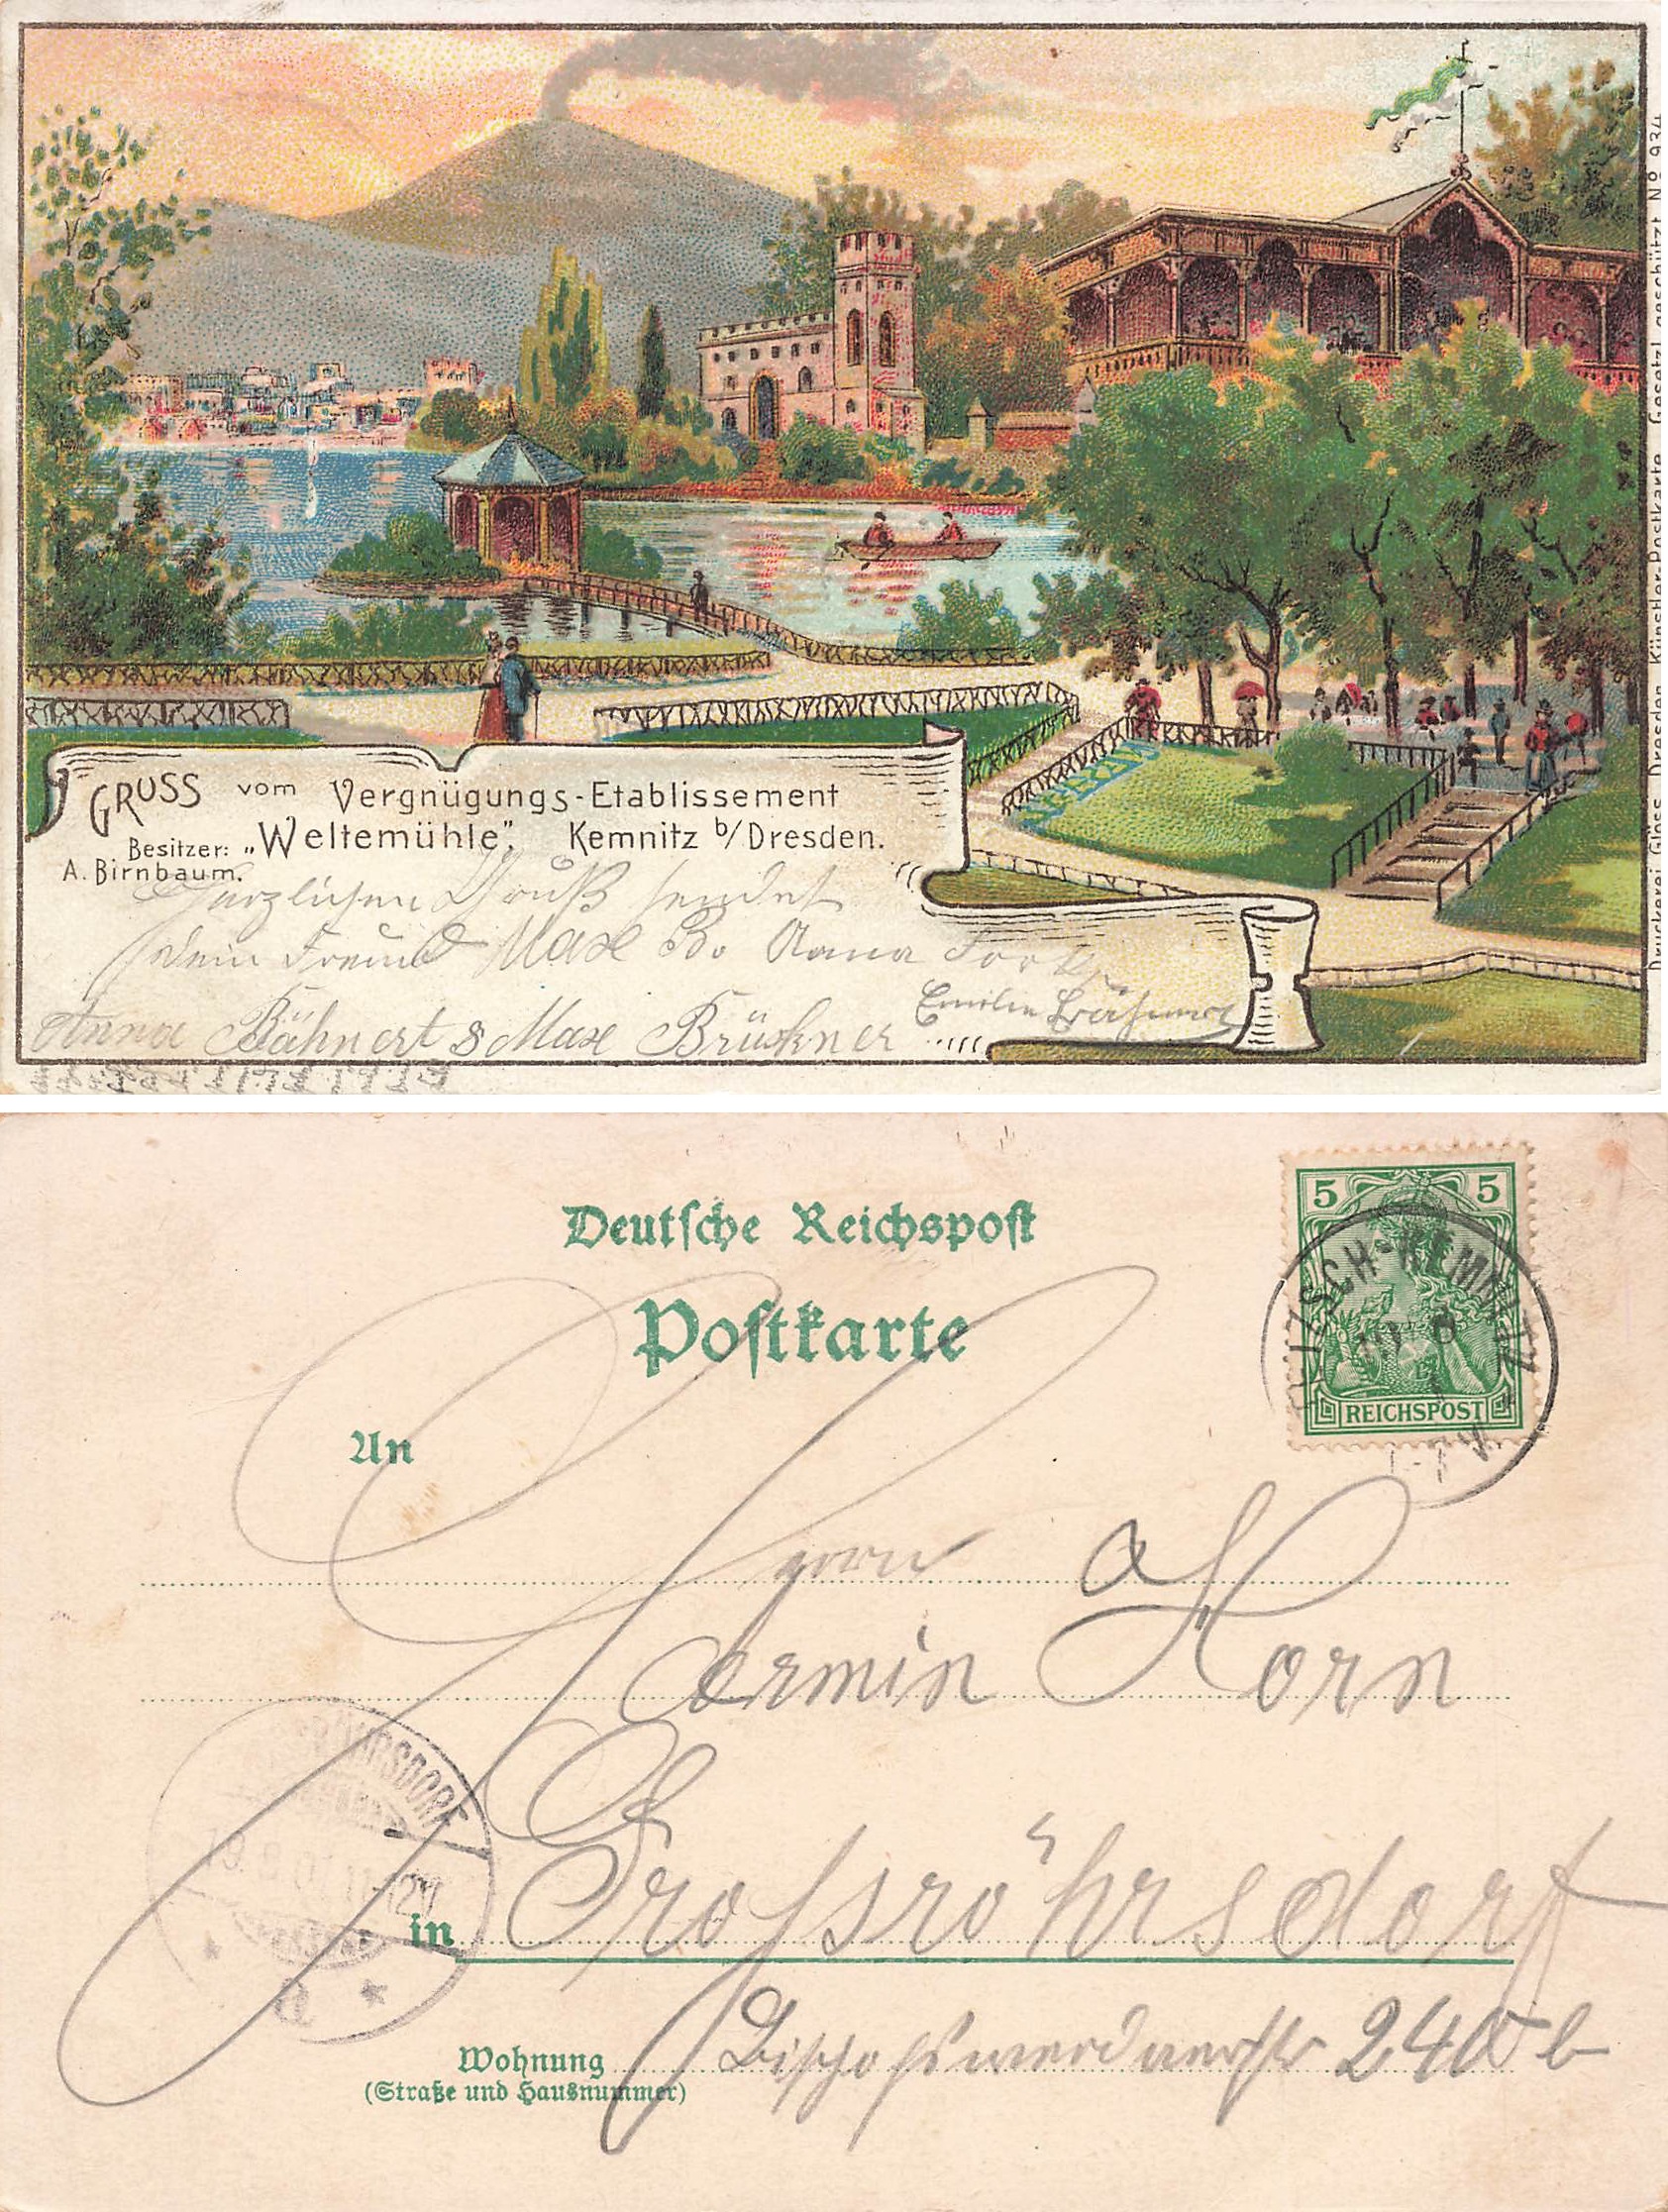 GRUSS vom Vergnügungs-Etablissement
Besitzer: „Weltemühle". Kemnitz b/Dresden.
A. Birnbaum.
Herzlichen Gruß sendet
dein Freund Max B. Anna
Emilie
Anna Bähnert & Max Brückner
Druckerei Glöss, Dresden. Künstler-Postkarte. Gesetzl. geschützt. No 934
Deutsche Reichspost
Postkarte
5 5
REICHSPOST
An
Herrn
Hermin Horn
RÖHRSDORF
19.8.01.11-12V
a
in Grossröhrsdorf
Wohnung Bischofswerdaerstr 240 b
(Straße und Hausnummer)